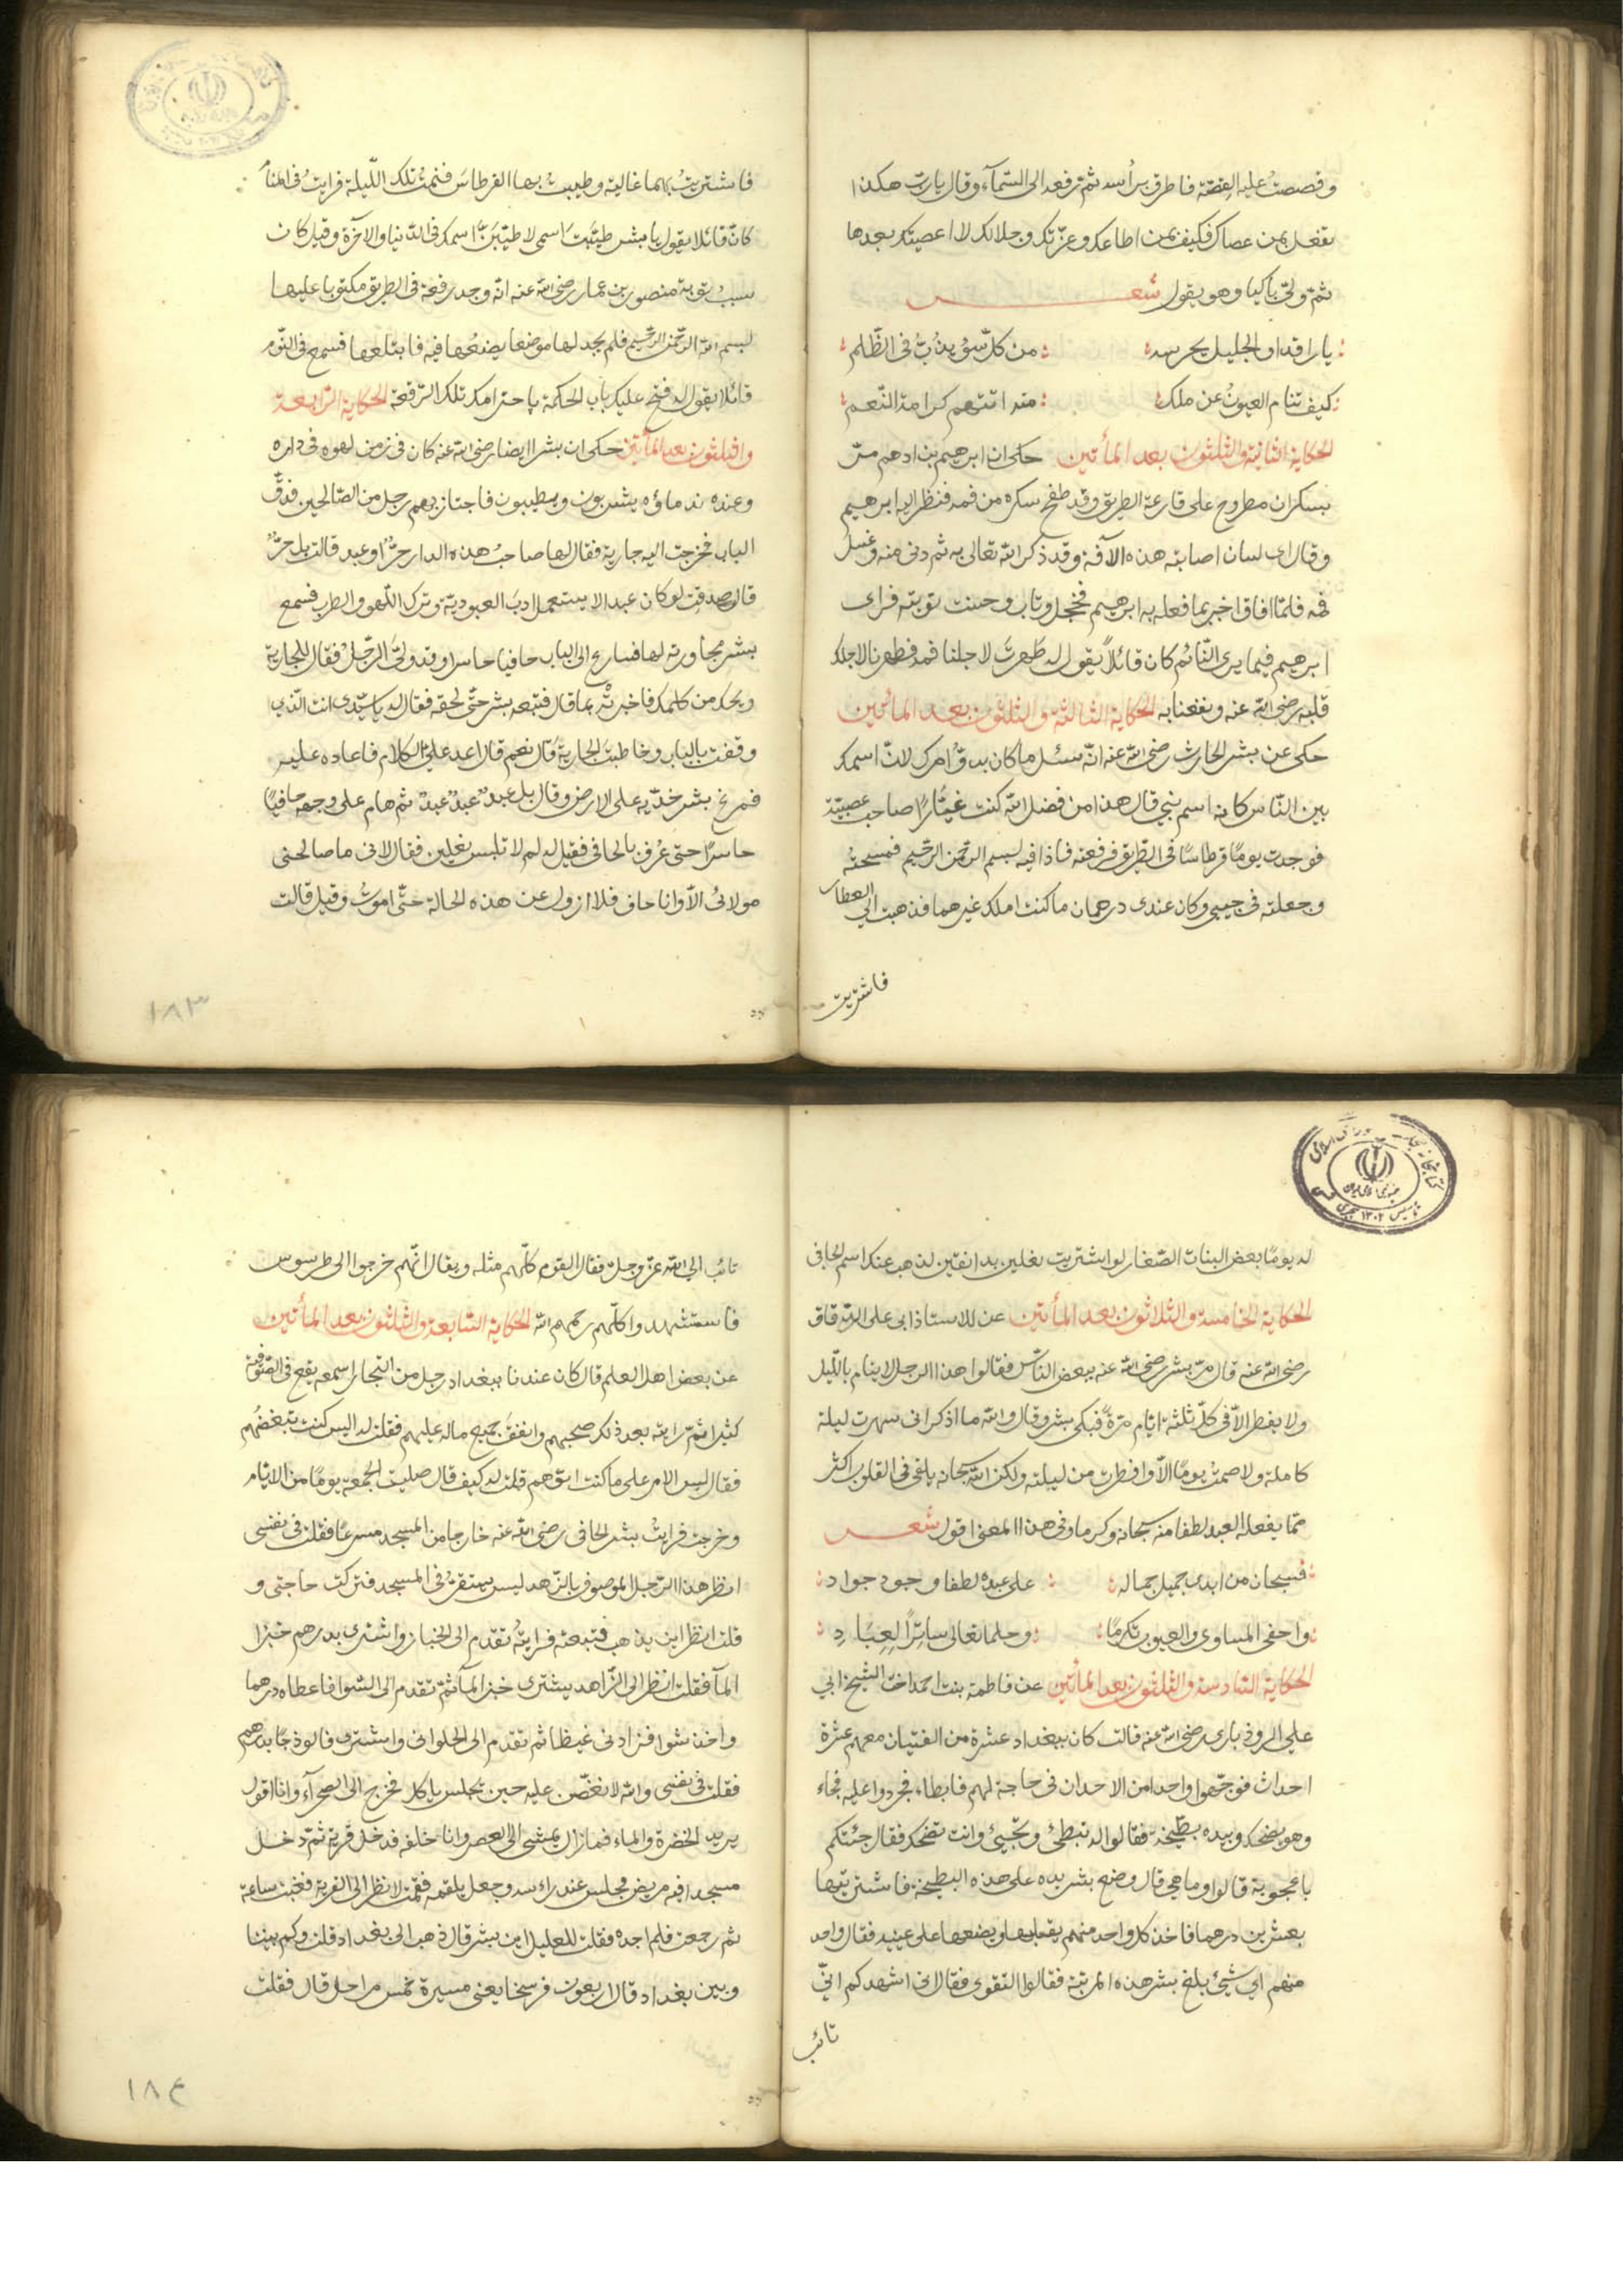 وقصصت عليه القصّة فاطرق برأسه ثم رفعه الى السّمآء وقال يا ربّ هكذا
تفعل بمن عصاك فكيف بمن اطاعك وعزّتك وجلالك لا اعصيتك بعدها
ثم ولّى باكيا وهو يقول شعر
يا راقدا والجليل يحرسه من كلّ سوء يدبّ فى الظّلم
كيف تنام العيون عن ملك منه اتتهم كرامة النّعم
الحكاية الثانية والثلثون بعد المأتين حكى ان ابرهيم بن ادهم مرّ
بسكران مطروح على قارعة الطريق وقد طفح سكره من فمه فنظر اليه ابرهيم
وقال اى لسان اصابته هذه الآفة وقد ذكر الله تعالى به ثم دنى منه وغسل
فمه فلمّا افاق اخبر بما فعله به ابرهيم فخجل وتاب وحسنت توبته فراى
ابرهيم فيما يرى النّائم كان قائلاً يقول له طهّرت لاجلنا فمه فطهرنا لاجلك
قلبه رضى الله عنه ونفعنا به الحكاية الثالثة والثلثون بعد المائتين
حكى عن بشر الحارث رضى الله عنه انّه سئل ما كان بدوّ امرك لانّ اسمك
بين النّاس كانه اسم نبي قال هذا من فضل الله كنت عيّارًا صاحب عصبيّة
فوجدت يومًا قرطاسًا فى الطريق فرفعته فاذا فيه بسم الله الرّحمن الرّحيم فمسحته
وجعلته فى جيبي وكان عندى درهمان ما كنت املك غيرهما فذهبت الى العطار
فاشتريت
فاشتريت بهما غالية وطيبت بها القرطاس فنمت تلك اللّيلة فرايت فى المنام
كانّ قائلا يقول يا بشر طيّبت اسمى لاطيّبنّ اسمك فى الدّنيا والآخرة وقيل كان
سبب توبة منصور بن عمار رضى الله عنه انّه وجد رقعة فى الطريق مكتوبا عليها
بسم الله الرّحمن الرّحيم فلم يجد لها موضعا يضعها فيه فابتلعها فسمع فى النّوم
قائلا يقول له فتح عليك باب الحكمة باحترامك تلك الرّقعة الحكاية الرّابعة
والثلثون بعد المأتين حكى ان بشرا ايضا رضى الله عنه كان فى زمن لهوه فى داره
وعنده ندماؤه يشربون ويطيبون فاجتاز بهم رجل من الصّالحين فدقّ
الباب فخرجت اليه جارية فقال لها صاحب هذه الدار حرّ او عبد قالت بل حرّ
قال صدقت لو كان عبدا لاستعمل ادب العبوديّة وترك اللّهو والطرب فسمع
بشر محاورته لها فسارع الى الباب حافيا حاسرا وقد ولّى الرّجل فقال للجارية
ويحك من كلمك فاخبرته بما قال فتبعه بشر حتّى لحقه فقال له يا سيّدى انت الّذى
وقفت بالباب وخاطبت الجارية قال نعم قال اعد علىّ الكلام فاعاده عليه
فمرغ بشر خدّيه على الارض وقال بل عبد عبد عبد ثم هام على وجهه حافيًا
حاسرًا حتى عرف بالحافى فقيل له لم لا تلبس نعلين فقال لانى ما صالحنى
مولائى الّا وانا حاف فلا ازول عن هذه الحالة حتّى اموت وقيل قالت
١٨٣
له يومًا بعض البنات الصّغار لو اشتريت نعلين بدانقين لذهب عنك اسم الحافى
الحكاية الخامسة والثلاثون بعد المأتين عن للاستاذ ابى على الدّقاق
رضى الله عنه قال مرّ بشر رضى الله عنه ببعض النّاس فقالوا هذا الرجل لا ينام باللّيل
ولا يفطر الّا فى كلّ ثلثة ايّام مرّة فبكى بشر وقال والله ما اذكر انى سهرت ليلة
كاملة ولا صمت يومًا الّا وافطرت من ليلته ولكن الله سبحانه يلقى فى القلوب اكثر
ممّا يفعله العبد لطفا منه سبحانه وكرما وفى هذا المعنى اقول شعر
فسبحان من ابدى جميل جماله على عبده لطفا وجود جواد
واخفى المساوى والعيوب تكرمًا وحلما تعالى ساترًا لعِبَادِ
الحكاية السّادسة والثلثون بعد المأتين عن فاطمة بنت احمد اخت الشيخ ابي
علي الروذبارى رضى الله عنه قالت كان ببغداد عشرة من الفتيان معهم عشرة
احداث فوجّهوا واحدا من الاحداث فى حاجة لهم فابطاء فحردوا عليه فجاء
وهو يضحك وبيده بطّيخة فقالوا له تبطئ وتجيئ وانت تضحك فقال جئتكم
باعجوبة قالوا وما هي قال وضع بشر يده على هذه البطيخة فاشتريتها
بعشرين درهما فاخذ كل واحد منهم يقبلها ويضعها على عينيه فقال واحد
منهم اي شيئ بلغ بشر هذه المرتبة فقالوا التقوى فقال انى اشهدكم انّى
تائب
تائب الى الله عزّ وجلّ فقال القوم كلّهم مثله ويقال انّهم خرجوا الى طرسوس
فاستشهدوا كلّهم رحمهم الله الحكاية السّابعة والثلثون بعد المأتين
عن بعض اهل العلم قال كان عندنا ببغداد رجل من التجار اسمعه يقع فى الصّوفيّة
كثيرا ثم رايته بعد ذلك صحبهم وانفق جميع ماله عليهم فقلت له اليس كنت تبغضهم
فقال ليس الامر على ما كنت اتوّهم قلت له كيف قال صليت الجمعة يومًا من الايّام
وخرجت فرايت بشر الحافى رضى الله عنه خارجا من المسجد مسرعًا فقلت فى نفسى
انظر هذا الرّجل الموصوف بالزّهد ليس يستقرّ فى المسجد فتركت حاجتى و
قلت انظر اين يذهب فتبعته فرايته تقدم الى الخباز واشترى بدرهم خبزا
المآ فقلت انظر الى الزّاهد يشترى خبز المآ ثمّ تقدم الى الشوا فاعطاه درهما
واخذ شوا فزادنى غيظا ثم تقدم الى الحلوانى واشترى فالوذجًا بدرهم
فقلت فى نفسى والله لانغصّن عليه حين يجلس ياكل فخرج الى الصحرآء وانا اقول
يريد الخضرة والماء فما زال يمشى الى العصر وانا خلفه فدخل قرية ثمّ دخل
مسجدا فيه مريض فجلس عند راسه وجعل يلقمه فقمت لانظر الى القرية فغبت ساعة
ثم رجعت فلم اجده فقلت للعليل اين بشر قال ذهب الى بغداد قلت وكم بيننا
وبين بغداد قال اربعون فرسخا يعنى مسيرة خمس مراحل قال فقلت
١٨٤